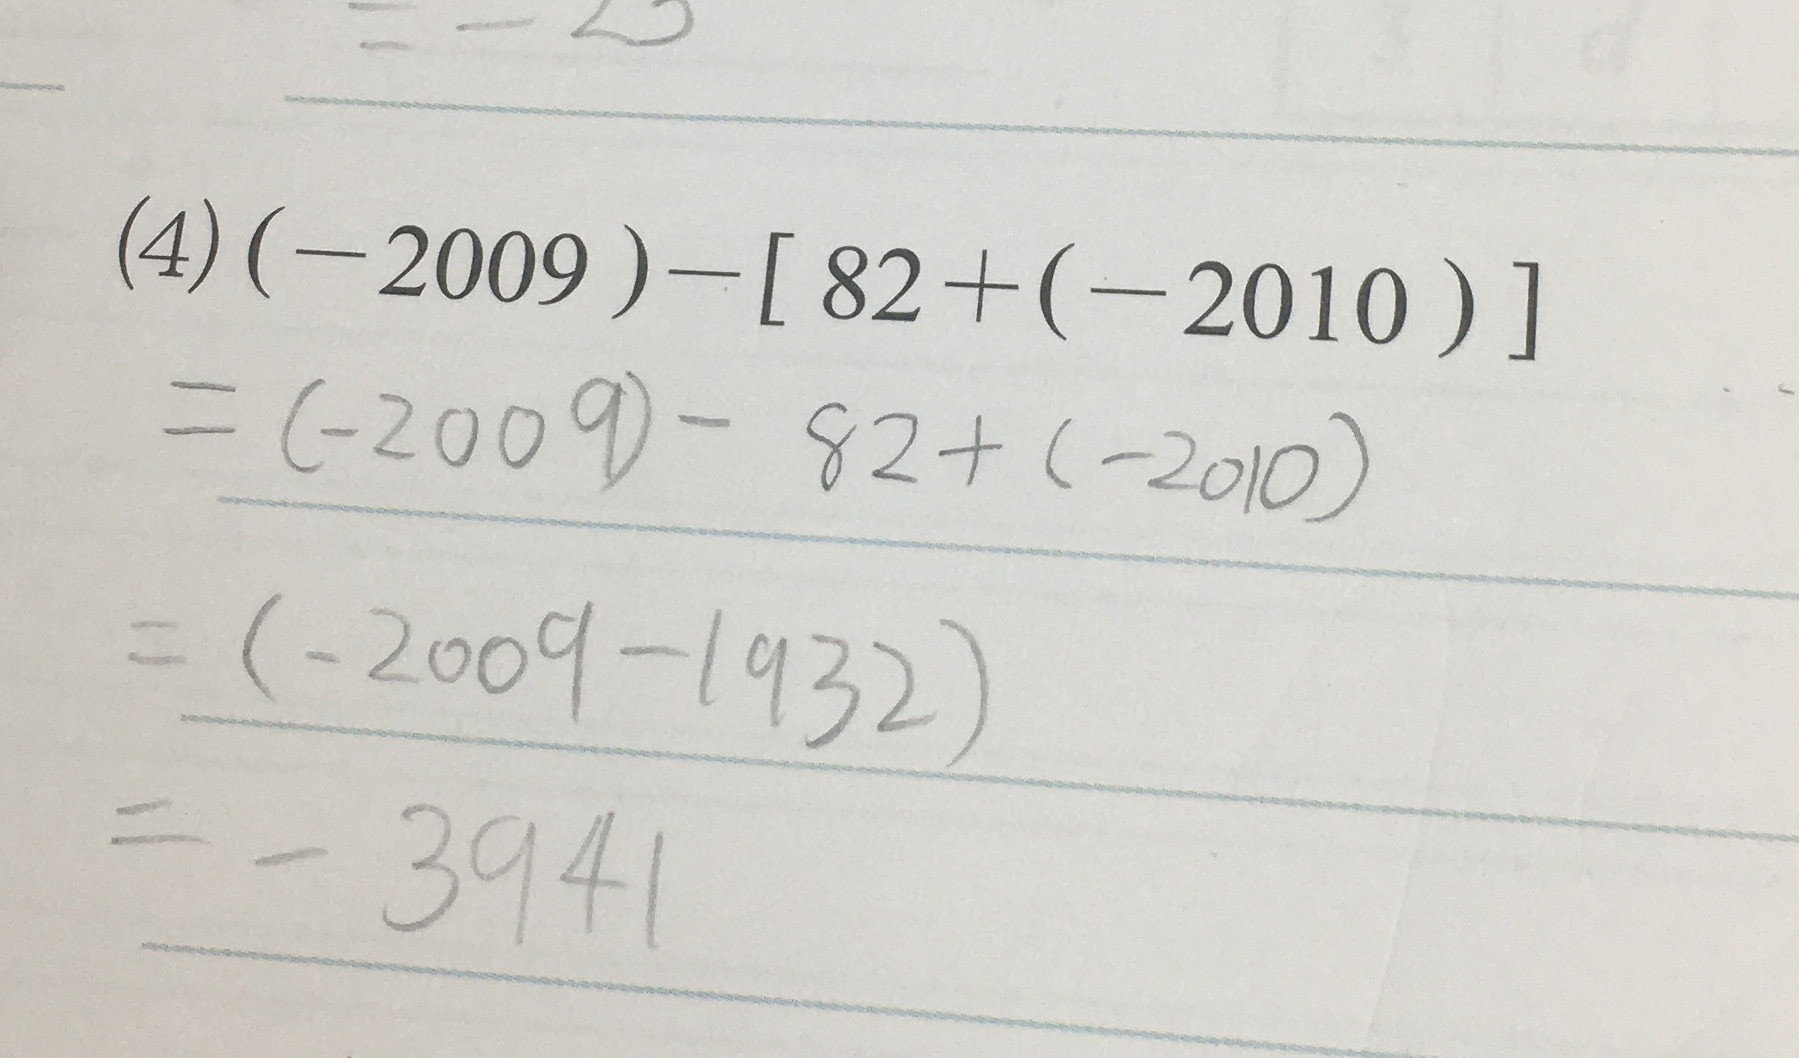 = - 25
(4) (-2009)-[82+(-2010)]
= (-2009) - 82 + (-2010)
= (-2009-1932)
= - 3941